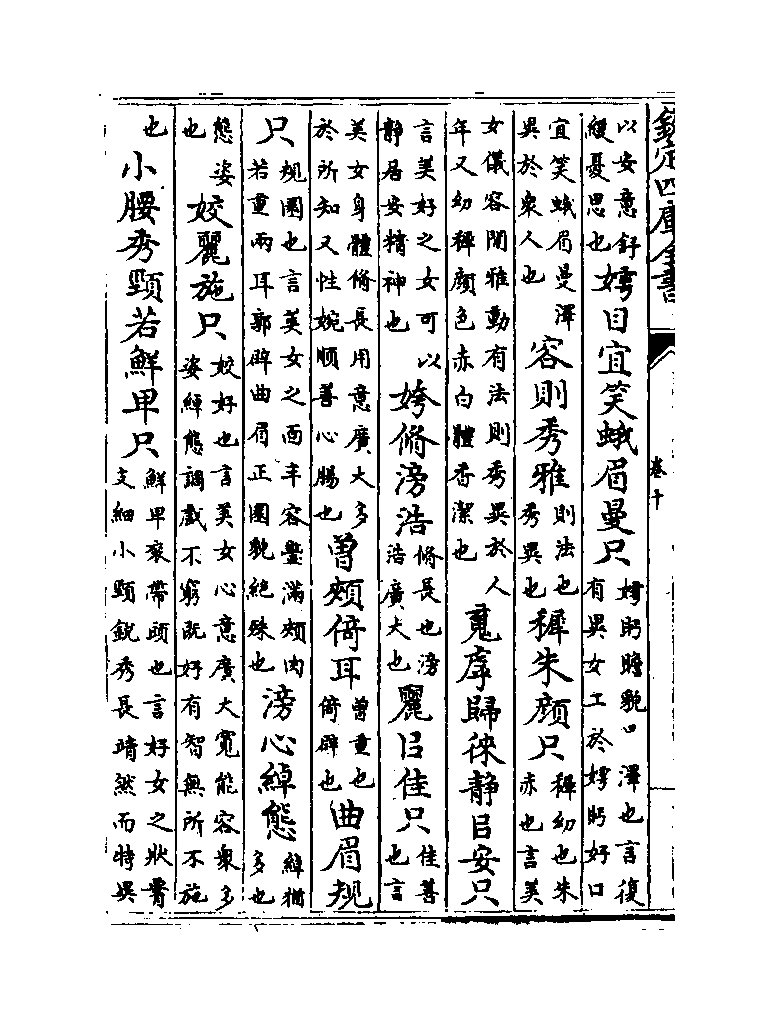 欽定四庫全書
卷十
以安意舒緩憂思也嫮目宜笑蛾眉曼只嫮眄瞻貌口澤也言復有異女工於嫮眄好口
宜笑蛾眉曼澤異於衆人也容則秀雅則法也秀異也穉朱顔只穉幼也朱赤也言美
女儀容閒雅動有法則秀異於人年又幼穉顔色赤白體香潔也䰟虖歸徠静㠯安只
言美好之女可以静居安精神也姱脩滂浩脩長也滂浩廣大也麗㠯佳只佳善也言
美女身體脩長用意廣大多於所知又性婉順善心腸也曽頰倚耳曽重也倚辟也曲眉規
只規圜也言美女之面丰容豐滿頰肉若重兩耳郭辟曲眉正圜貌絶殊也滂心綽態綽猶多也
態姿也姣麗施只姣好也言美女心意廣大寛能容衆多姿綽態調戲不窮既好有智無所不施
也小腰秀頸若鮮卑只鮮卑衮帶頭也言好女之狀腰支細小頸鋭秀長靖然而特異